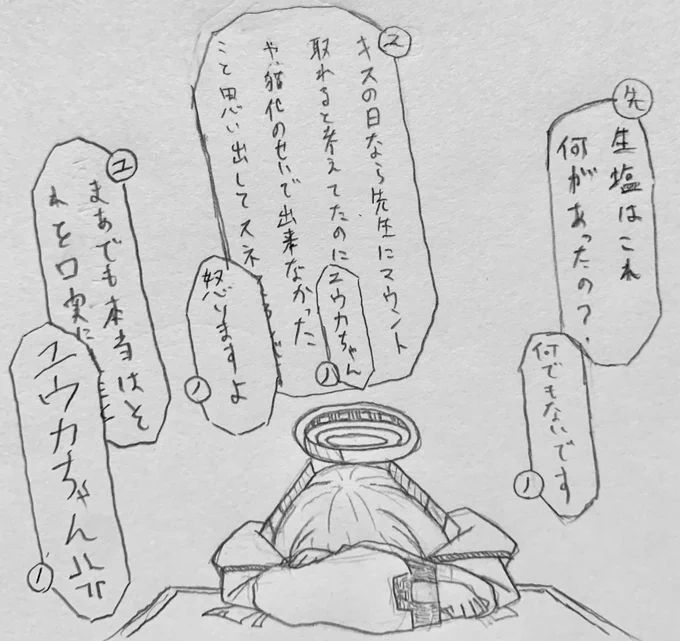 先
生塩はこれ
何があったの?
何でもないです
ノ
ユ
キスの日なら先生にマウント
取れると考えてたのに
や、猫化のせいで出来なかった
こと思い出してスネ
ユウカちゃん
ノ
怒りますよ
ノ
ユ
まあでも本当はそ
れを口実に
ユウカちゃん
ノ